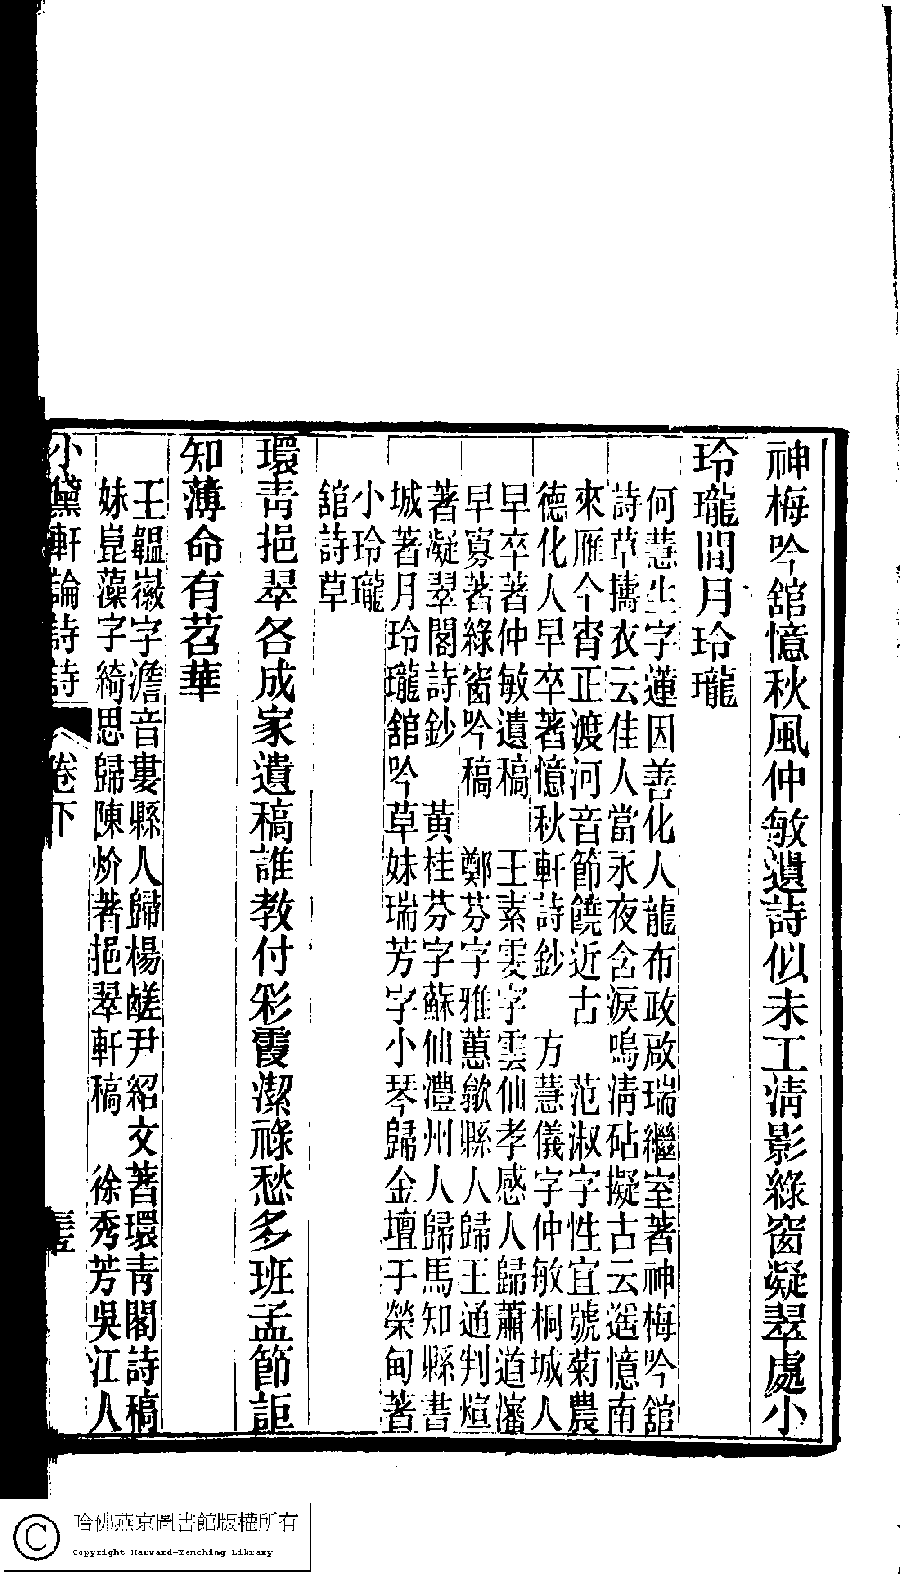 神梅吟舘憶秋風仲敏遺詩似未工淸影綠窗凝翠處小
玲瓏間月玲瓏
何慧生字蓮因善化人龍布政啟瑞繼室著神梅吟舘
詩草擣衣云佳人當永夜含淚鳴淸砧擬古云遥憶南
來雁今宵正渡河音節饒近古　范淑字性宜號菊農
德化人早卒著憶秋軒詩鈔　方慧儀字仲敏桐城人
早卒著仲敏遺稿　王素雯字雲仙孝感人歸蕭道瀋
早寡著綠窗吟稿　鄭芬字雅蕙歙縣人歸王通判煊
著凝翠閣詩鈔　黃桂芬字蘇仙澧州人歸馬知縣書
城著月玲瓏舘吟草妹瑞芳字小琴歸金壇于榮甸著
小玲瓏
舘詩草
環青挹翠各成家遺稿誰教付彩霞潔祿愁多班孟節詎
知薄命有苕華
王韞徽字澹音婁縣人歸楊鹺尹紹文著環青閣詩稿
妹崑藻字綺思歸陳炌著挹翠軒稿　徐秀芳吳江人
小黛軒論詩詩　卷下
哈佛燕京圖書館版權所有
Copyright Harvard-Yenching Library